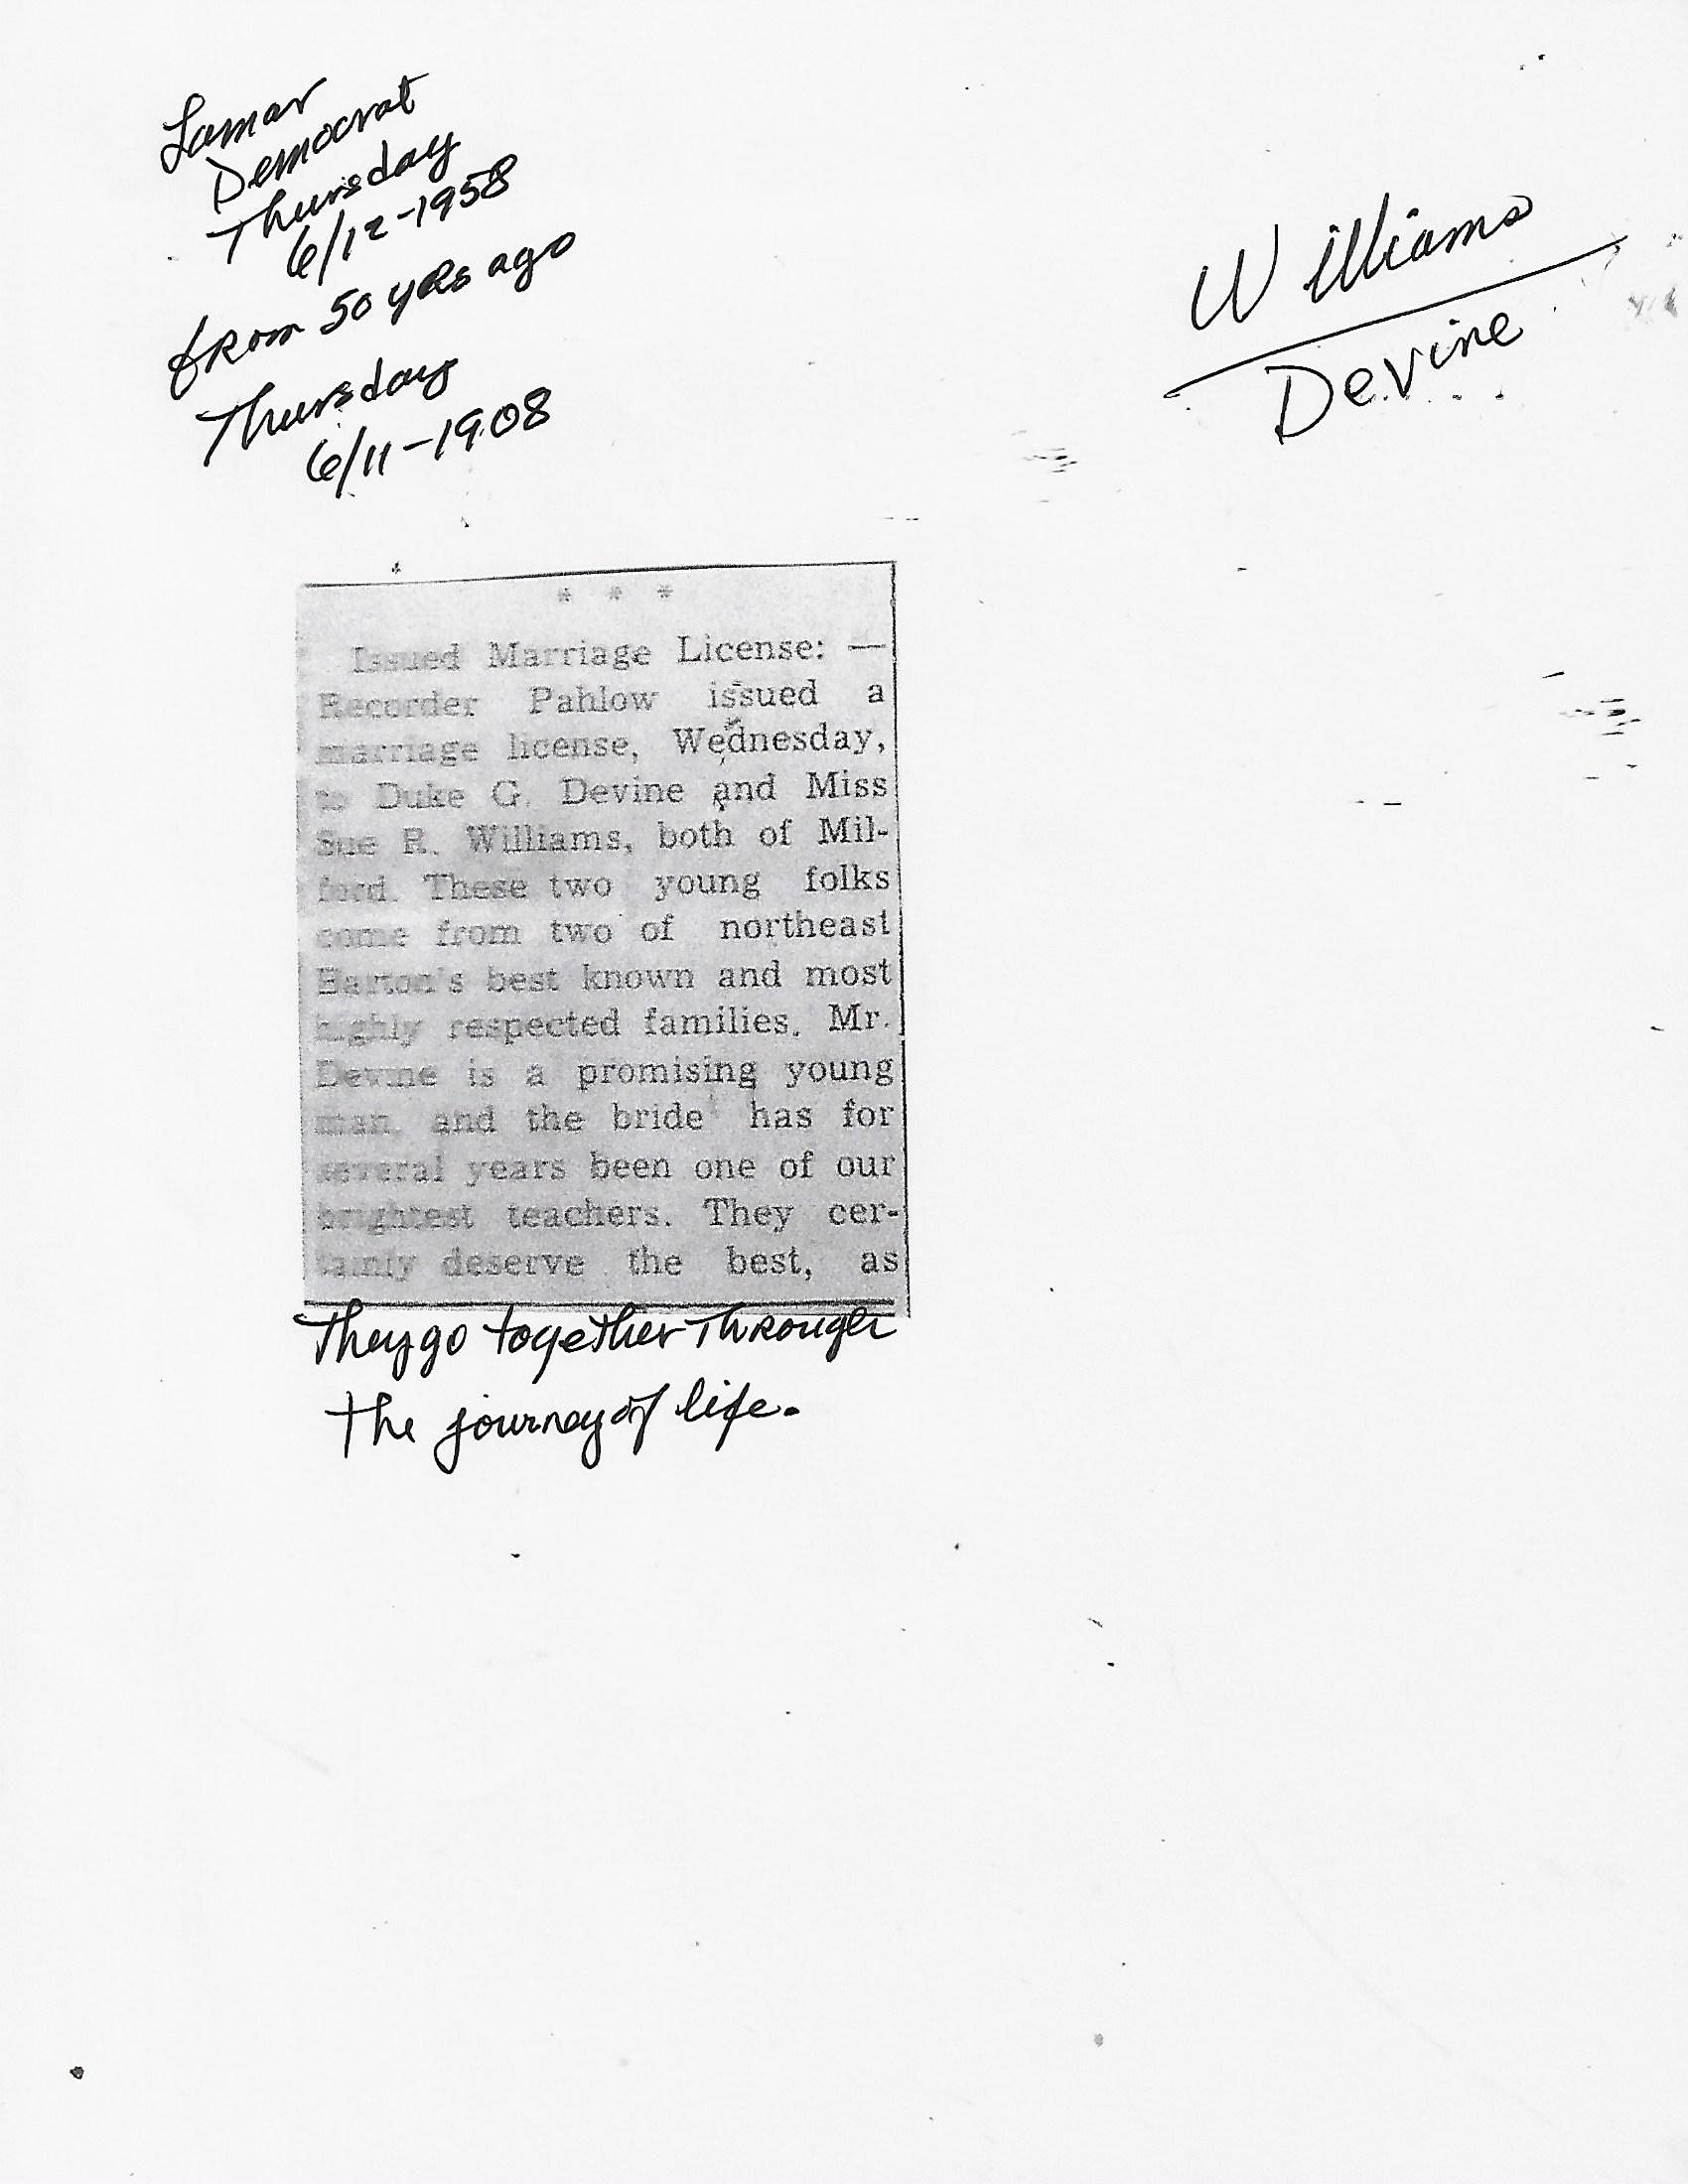 Lamar
Democrat
Thursday
6/12-1958
from 50 yrs ago
Thursday
6/11-1908
Williams
Devine
* * *
Issued Marriage License: —
Recorder Pahlow issued a
marriage license, Wednesday,
to Duke G. Devine and Miss
Sue R. Williams, both of Mil-
ford. These two young folks
come from two of northeast
Barton's best known and most
highly respected families. Mr.
Devine is a promising young
man, and the bride has for
several years been one of our
brightest teachers. They cer-
tainly deserve the best, as
they go together through
the journey of life.